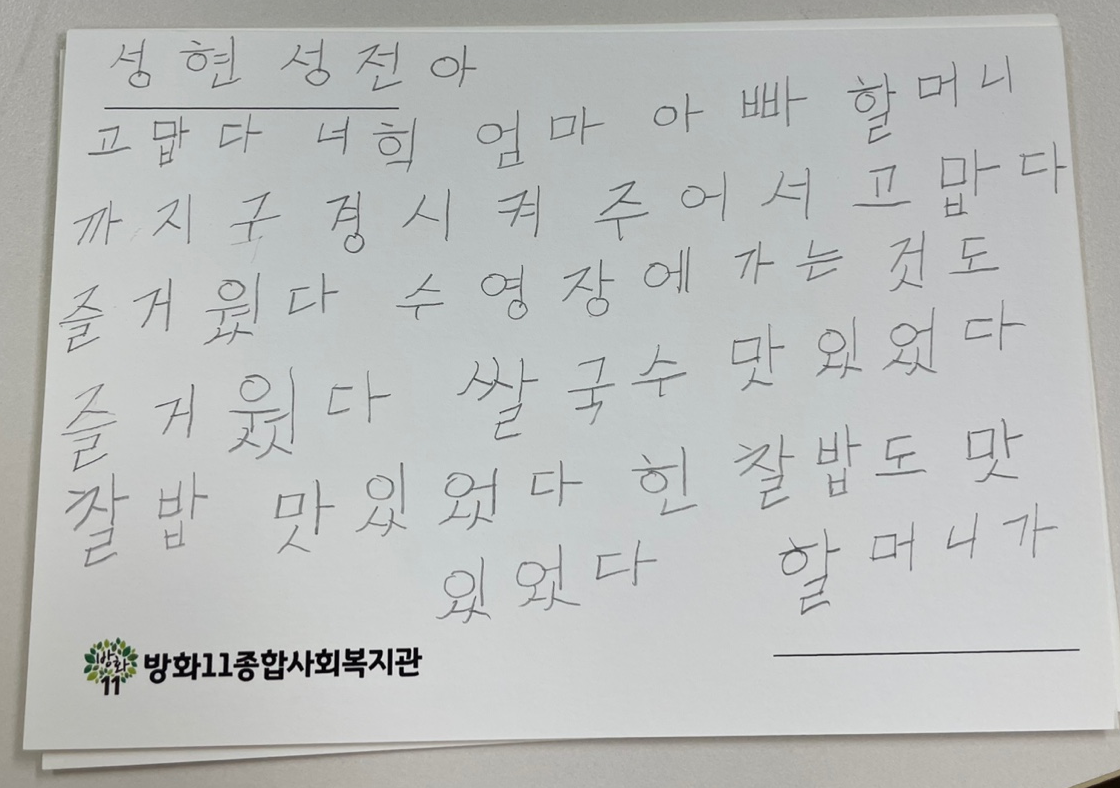 성현 성전아
고맙다 너희 엄마 아빠 할머니
까지 구경시켜 주어서 고맙다
즐거웠다 수영장에 가는 것도
즐거웠다 쌀국수 맛있었다
찰밥 맛있었다 힌 찰밥도 맛
있었다 할머니가
방화
11
방화11종합사회복지관